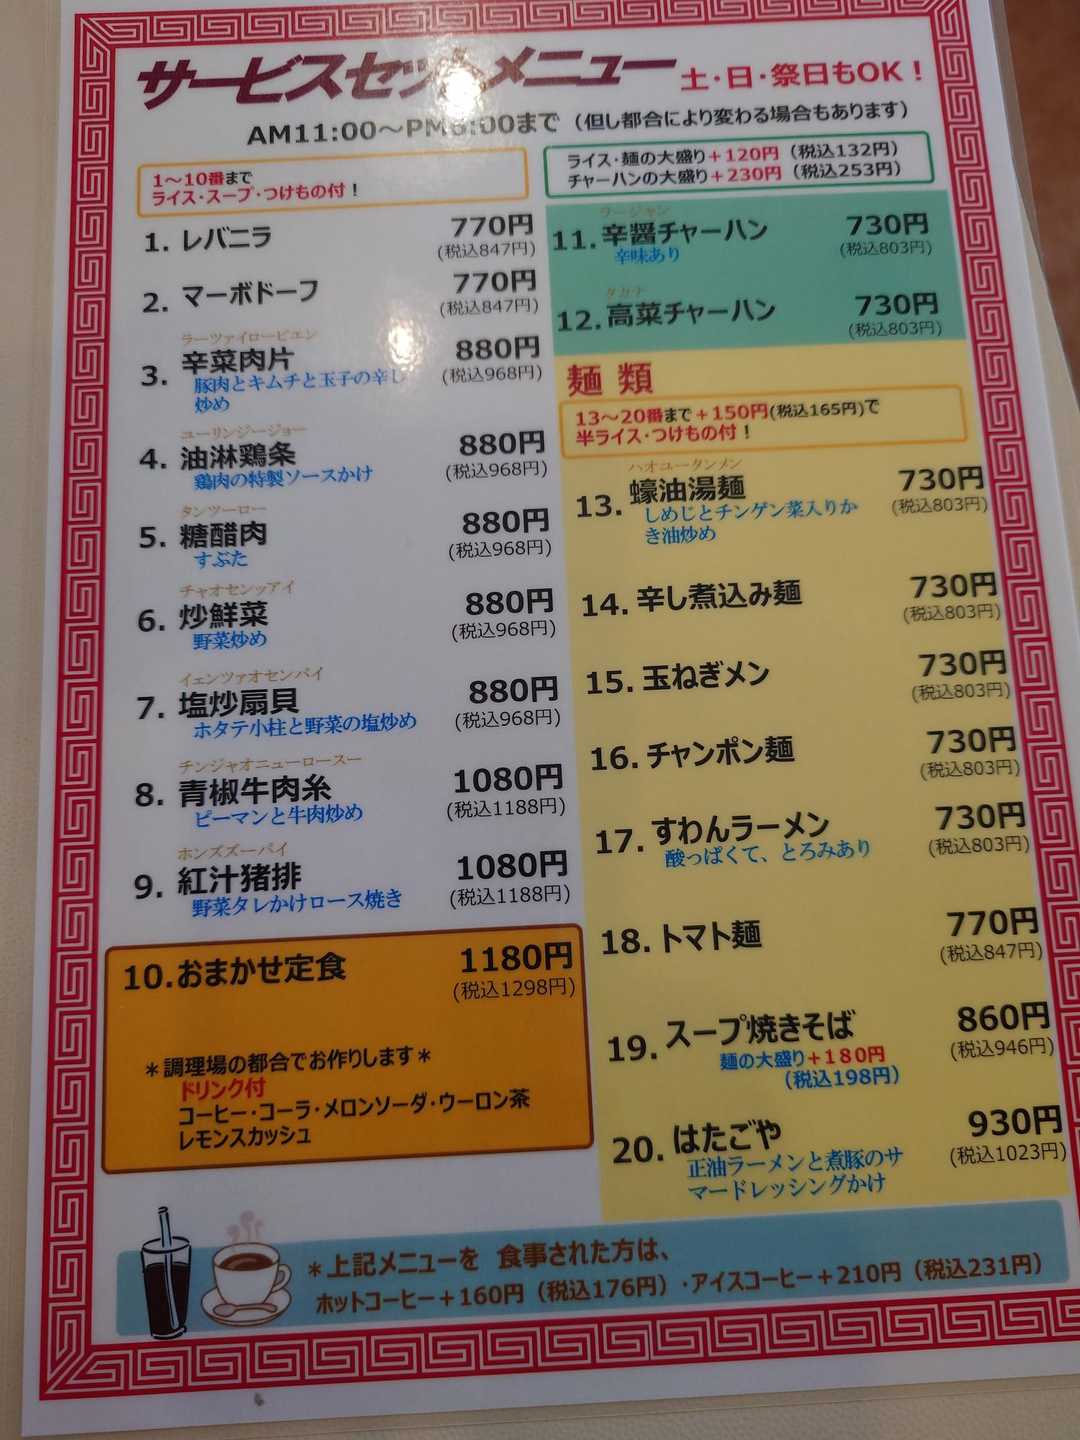 サービスセットメニュー 土・日・祭日もOK！
AM11:00～PM5:00まで（但し都合により変わる場合もあります）
1～10番まで
ライス・スープ・つけもの付！
1. レバニラ 770円
(税込847円)
2. マーボドーフ 770円
(税込847円)
ラーツァイローピエン
3. 辛菜肉片 880円
(税込968円)
豚肉とキムチと玉子の辛し
炒め
ユーリンジージョー
4. 油淋鶏条 880円
(税込968円)
鶏肉の特製ソースかけ
タンツーロー
5. 糖醋肉 880円
(税込968円)
すぶた
チャオセンッアイ
6. 炒鮮菜 880円
(税込968円)
野菜炒め
イェンツァオセンパイ
7. 塩炒扇貝 880円
(税込968円)
ホタテ小柱と野菜の塩炒め
チンジャオニューロースー
8. 青椒牛肉糸 1080円
(税込1188円)
ピーマンと牛肉炒め
ホンズズーパイ
9. 紅汁猪排 1080円
(税込1188円)
野菜タレかけロース焼き
10.おまかせ定食 1180円
(税込1298円)
＊調理場の都合でお作りします＊
ドリンク付
コーヒー・コーラ・メロンソーダ・ウーロン茶
レモンスカッシュ
ライス・麺の大盛り＋120円（税込132円）
チャーハンの大盛り＋230円（税込253円）
ラージャン
11. 辛醤チャーハン 730円
(税込803円)
辛味あり
タカナ
12. 高菜チャーハン 730円
(税込803円)
麺類
13～20番まで＋150円(税込165円)で
半ライス・つけもの付！
ハオユータンメン
13. 蠔油湯麺 730円
(税込803円)
しめじとチンゲン菜入りか
き油炒め
14. 辛し煮込み麺 730円
(税込803円)
15. 玉ねぎメン 730円
(税込803円)
16. チャンポン麺 730円
(税込803円)
17. すわんラーメン 730円
(税込803円)
酸っぱくて、とろみあり
18. トマト麺 770円
(税込847円)
19. スープ焼きそば 860円
(税込946円)
麺の大盛り＋180円
（税込198円）
20. はたごや 930円
(税込1023円)
正油ラーメンと煮豚のサ
マードレッシングかけ
＊上記メニューを 食事された方は、
ホットコーヒー＋160円（税込176円）・アイスコーヒー＋210円（税込231円）